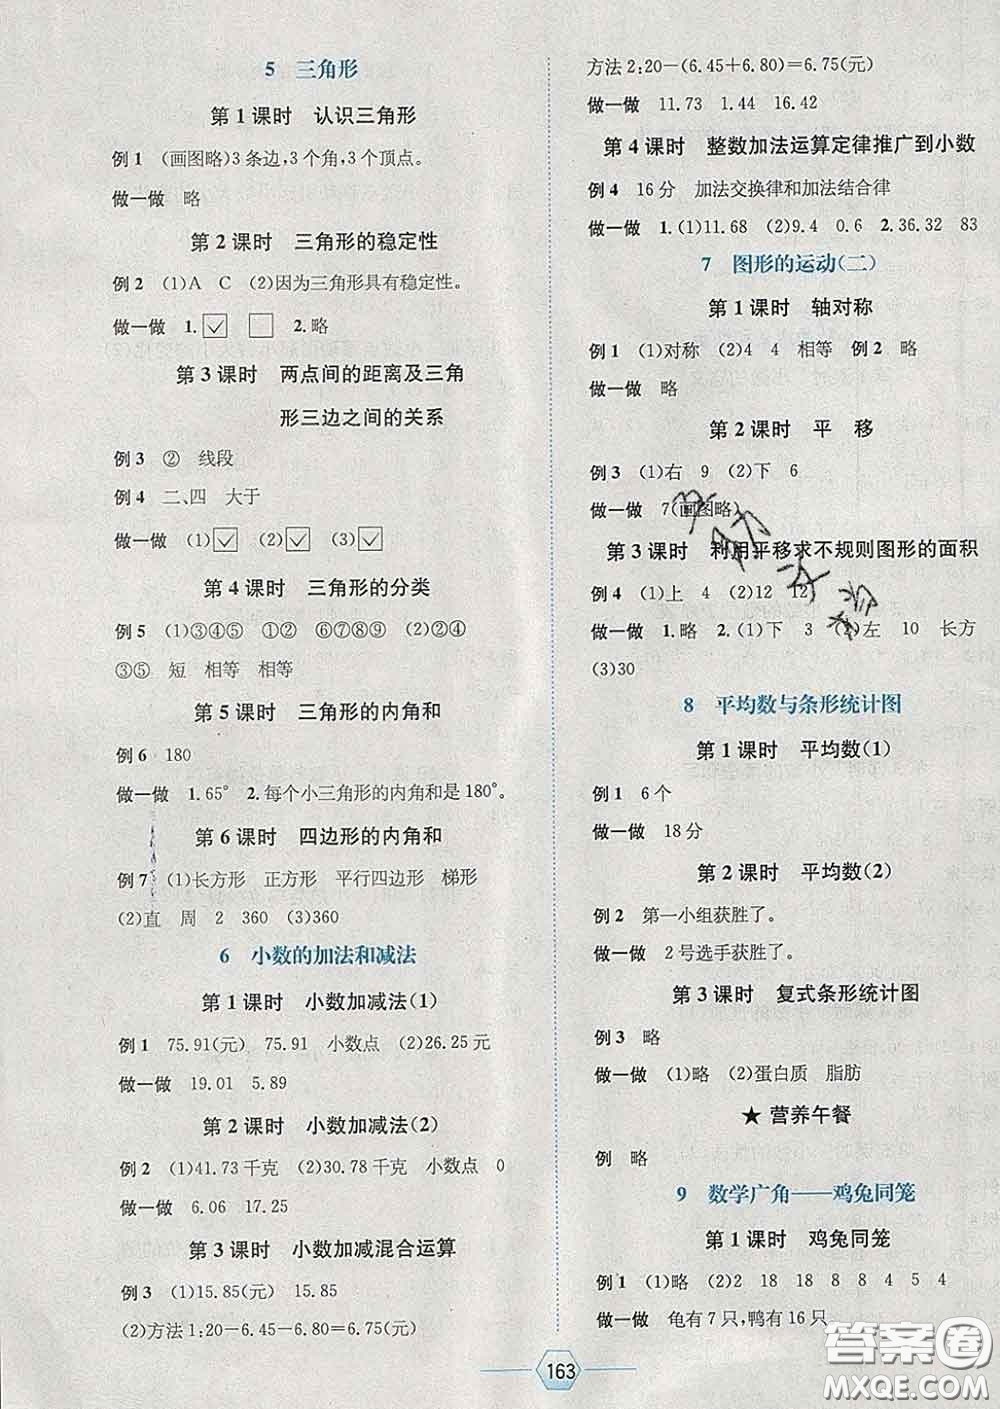 5 三角形
第1课时 认识三角形
例1 (画图略)3条边,3个角,3个顶点。
做一做 略
第2课时 三角形的稳定性
例2 (1)A C (2)因为三角形具有稳定性。
做一做 1.☑ □ 2.略
第3课时 两点间的距离及三角
形三边之间的关系
例3 ② 线段
例4 二、四 大于
做一做 (1)☑ (2)☑ (3)☑
第4课时 三角形的分类
例5 (1)③④⑤ ①② ⑥⑦⑧⑨ (2)②④
③⑤ 短 相等 相等
第5课时 三角形的内角和
例6 180
做一做 1.65° 2.每个小三角形的内角和是180°。
第6课时 四边形的内角和
例7 (1)长方形 正方形 平行四边形 梯形
(2)直 周 2 360 (3)360
6 小数的加法和减法
第1课时 小数加减法(1)
例1 75.91(元) 75.91 小数点 (2)26.25元
做一做 19.01 5.89
第2课时 小数加减法(2)
例2 (1)41.73千克 (2)30.78千克 小数点 0
做一做 6.06 17.25
第3课时 小数加减混合运算
例3 (1)15.85(元) 15.85
(2)方法1:20-6.45-6.80=6.75(元)
方法2:20-(6.45+6.80)=6.75(元)
做一做 11.73 1.44 16.42
第4课时 整数加法运算定律推广到小数
例4 16分 加法交换律和加法结合律
做一做 1.(1)11.68 (2)9.4 0.6 2.36.32 83
7 图形的运动(二)
第1课时 轴对称
例1 (1)对称 (2)4 4 相等 例2 略
做一做 略
第2课时 平 移
例3 (1)右 9 (2)下 6
做一做 7(画图略)
第3课时 利用平移求不规则图形的面积
例4 (1)上 4 (2)12 12
做一做 1.略 2.(1)下 3 (2)左 10 长方
(3)30
8 平均数与条形统计图
第1课时 平均数(1)
例1 6个
做一做 18分
第2课时 平均数(2)
例2 第一小组获胜了。
做一做 2号选手获胜了。
第3课时 复式条形统计图
例3 略
做一做 (1)略 (2)蛋白质 脂肪
★ 营养午餐
例 略
9 数学广角——鸡兔同笼
第1课时 鸡兔同笼
例1 (1)略 (2)2 18 18 8 8 4 5 4
做一做 龟有7只,鸭有16只
163
答案圈
MXQE.COM